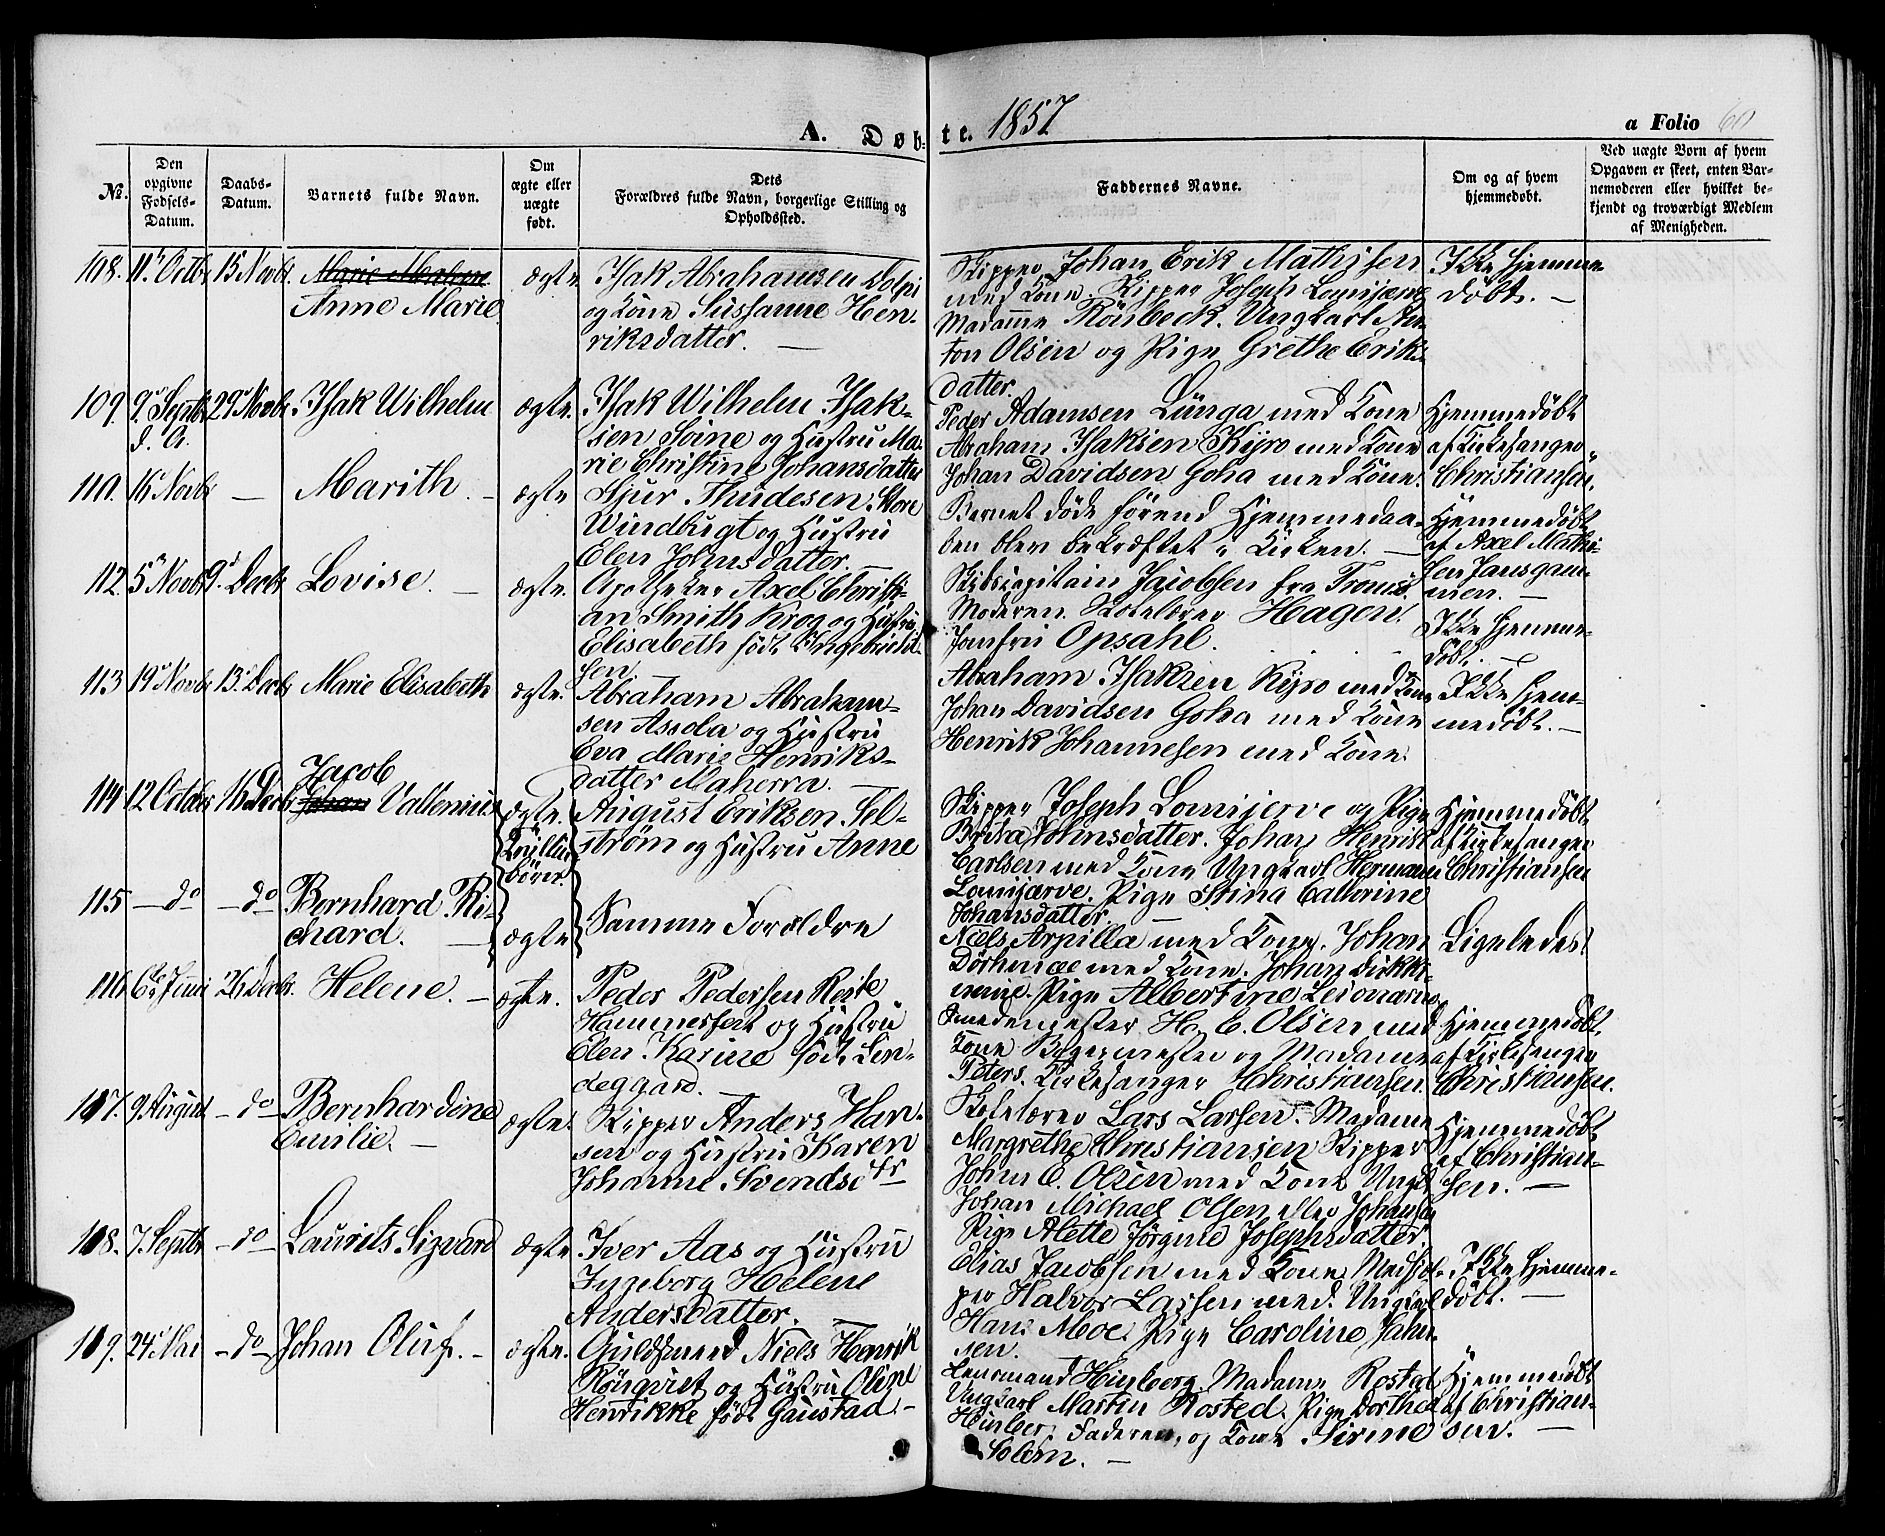 A. Døb-
te. 1857
a Folio 60
No.
Den opgivne Fødsels-Datum.
Daabs-Datum.
Barnets fulde Navn.
Om ægte eller uægte født.
Dets Forældres fulde Navn, borgerlige Stilling og Opholdssted.
Faddernes Navne.
Om og af hvem hjemmedøbt.
Ved uægte Børn af hvem Opgaven er skeet, enten Bar-nemoderen eller hvilket be-kjendt og troværdigt Medlem af Menigheden.
108. 11te Octbr 15 Novbr Marie Marlene ægte
Anne Marie
Isak Abrahamsen Dolpi
og Kone Sussanne Hen-
riksdatter. —
Skipper Johan Erik Mathisen
med Kone. Skipper Joseph Lomijerve
Madamme Rönbeck. Ungkarl An-
ton Olsen og Pige Grethe Eriks-
datter.
Ikke hjemme-
døbt. —
109. 9. Septbr 29 Novbr Isak Wilhelm ægte.
Isak Wilhelm Isak-
sen Soine og Hustru Ma-
rie Christine Johansdatter
Peder Adamsen Lünga med Kone
Abraham Isaksen Kyro med Kone
Johan Davidsen Goha med Kone.
Hjemmedøbt
af Kirkesanger
Christiansen.
110. 16 Novbr — Marith. — ægte
Sjur Thudesen Store
Windbugt og Hustru
Elen Johnsdatter. —
Barnet døde førend Hjemmedaa-
ben blev bekræftet i Kirken. —
Hjemmedøbt
af Axel Mathi-
sen Jansgam-
men. —
112. 5 Novbr 9. Decbr Lovise. — ægte.
Apotheker Axel Christi-
an Smith Krog og Hustru
Elisabeth født Ingebrigt-
sen
Skibscapitain Jacobsen fra Tromsø
Moderen. Skolelærer Hagen.
Jomfru Opsahl.
Ikke hjemme-
døbt. —
113 19 Novbr 13. Decbr Marie Elisabeth ægte.
Abraham Abraham-
sen Assola og Hustru
Eva Marie Henriks-
datter Maherra. —
Abraham Isaksen Kyro med Kone
Johan Davidsen Goha med Kone
Henrik Johannesen med Kone.
Ikke hjem-
medøbt. —
114 12 October 16 Decbr Johan Vallenius ægte.
Jacob
Tvilling
børn.
August Eriksen Sel-
strøm og Hustru Anne
Skipper Joseph Lomijerve og Pige
Brita Johnsdatter. Johan Henrik
Carlsen med Kone Ungkarl Hermann
Lomijærve. Pige Stina Catherine
Johansdatter. —
Hjemmedøbt
af Kirkesanger
Christiansen
115 — do — do Bernhard Ri-
chard. — ægte
Samme Forældre
Niels Arpilla med Kone. Johan
med Kone. Johan
Pige Albertine
Ligeledes.
116 6te Juni 26 Decbr. Helene. — ægte.
Peder Pedersen Reste
Hammerfest og Hustru
Elen Karine født Lin-
deggard. —
Smedemester H. E. Olsen med
Kone Bagermester og Madame
Peters. Kirkesanger Christiansen.
Hjemmedøbt
af Kirkesanger
Christiansen.
117. 9 August — do — Bernhardine
Emilie. — ægte.
Skipper Anders Han-
sen og Hustru Karen
Johanne Svendsdtr
Skolelærer Lars Larsen. Madame
Margrethe Christiansen Skipper
Johns E. Olsen med Kone Ungk
Johan Michael Olsen eller Johansen
Pige Alette Jørgine Josephsdatter.
Hjemmedøbt
af Christian-
sen. —
118. 7. Septbr — do — Laurits Sigvard ægte
Iver Aas og Hustru
Ingeborg Helene
Andersdatter. —
Elias Jacobsen med Kone
Halvor Larsen med. Ungkarl
Hans Moe. Pige Caroline Jahn-
sen.
Ikke hjemme-
døbt. —
119. 24 Mai — do — Johan Oluf. — ægte.
Guldsmed Niels Henrik
Rönqvist og Hustru Oline
Henrikke født Gaustad. —
Lensmand Hinberg Madame Rosted
Ungkarl Martin Rosted. Pige Dorthea
Hinberg Faderen, og Kone Sirine
Solem. —
Hjemmedøbt
af Christian-
sen. —